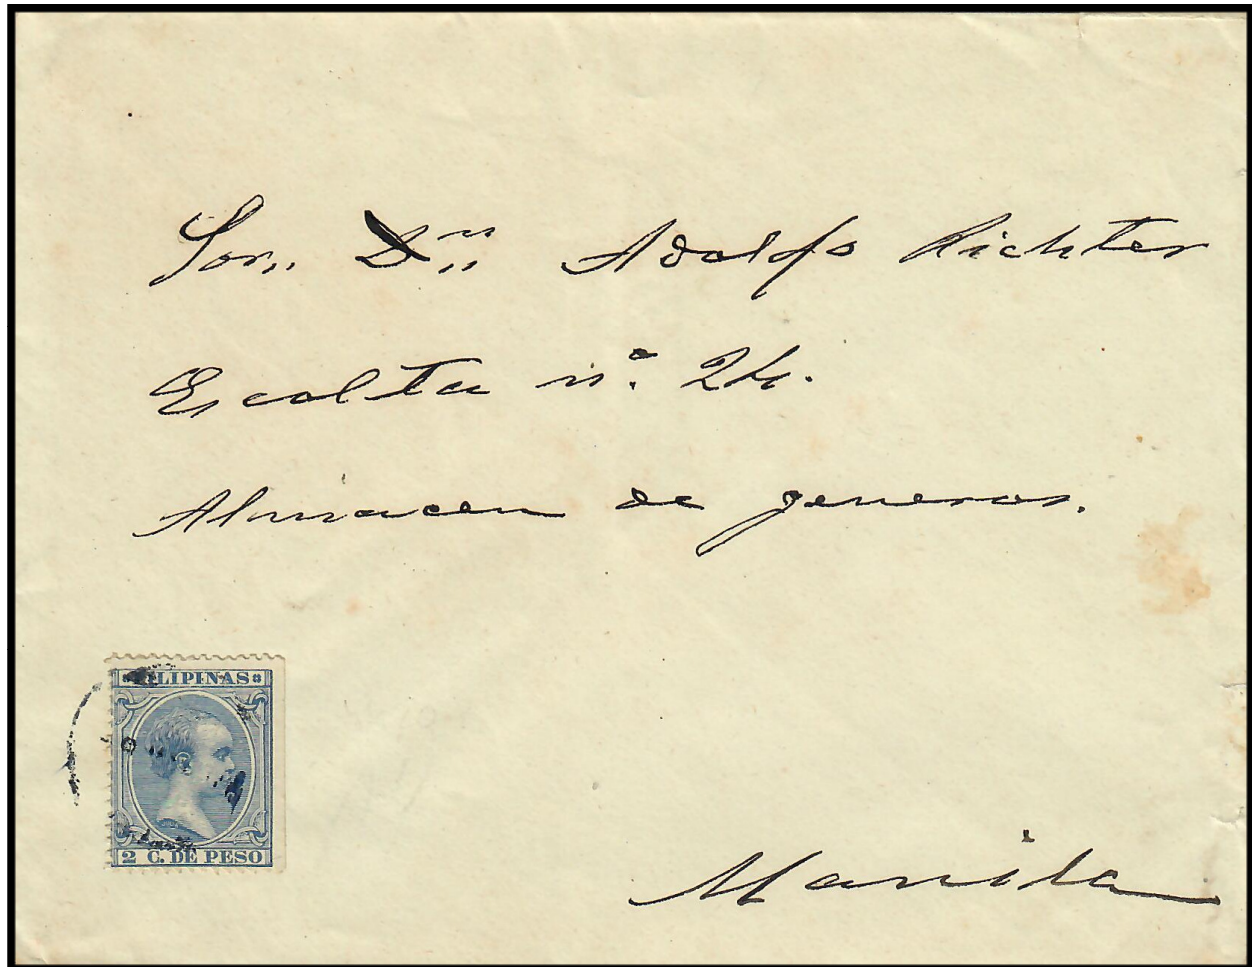 Sor,, Dn,, Adolfo Richter
Escolta nº. 24.
Almacen de generos.
FILIPINAS
2 C. DE PESO
Manila